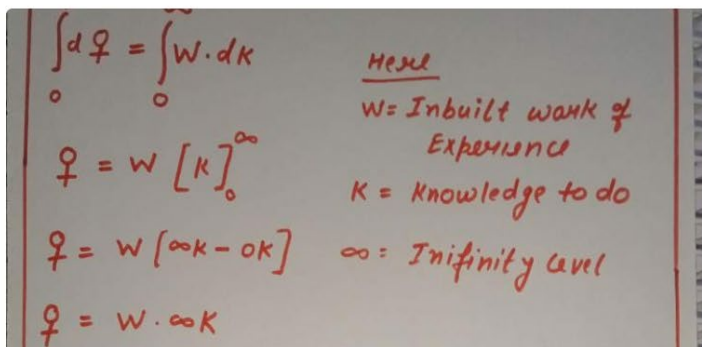 ∫₀ d♀ = ∫₀^∞ W·dK
♀ = W [K]₀^∞
♀ = W [∞K - 0K]
♀ = W · ∞K
Here
W = Inbuilt work of
Experience
K = Knowledge to do
∞ = Inifinity level